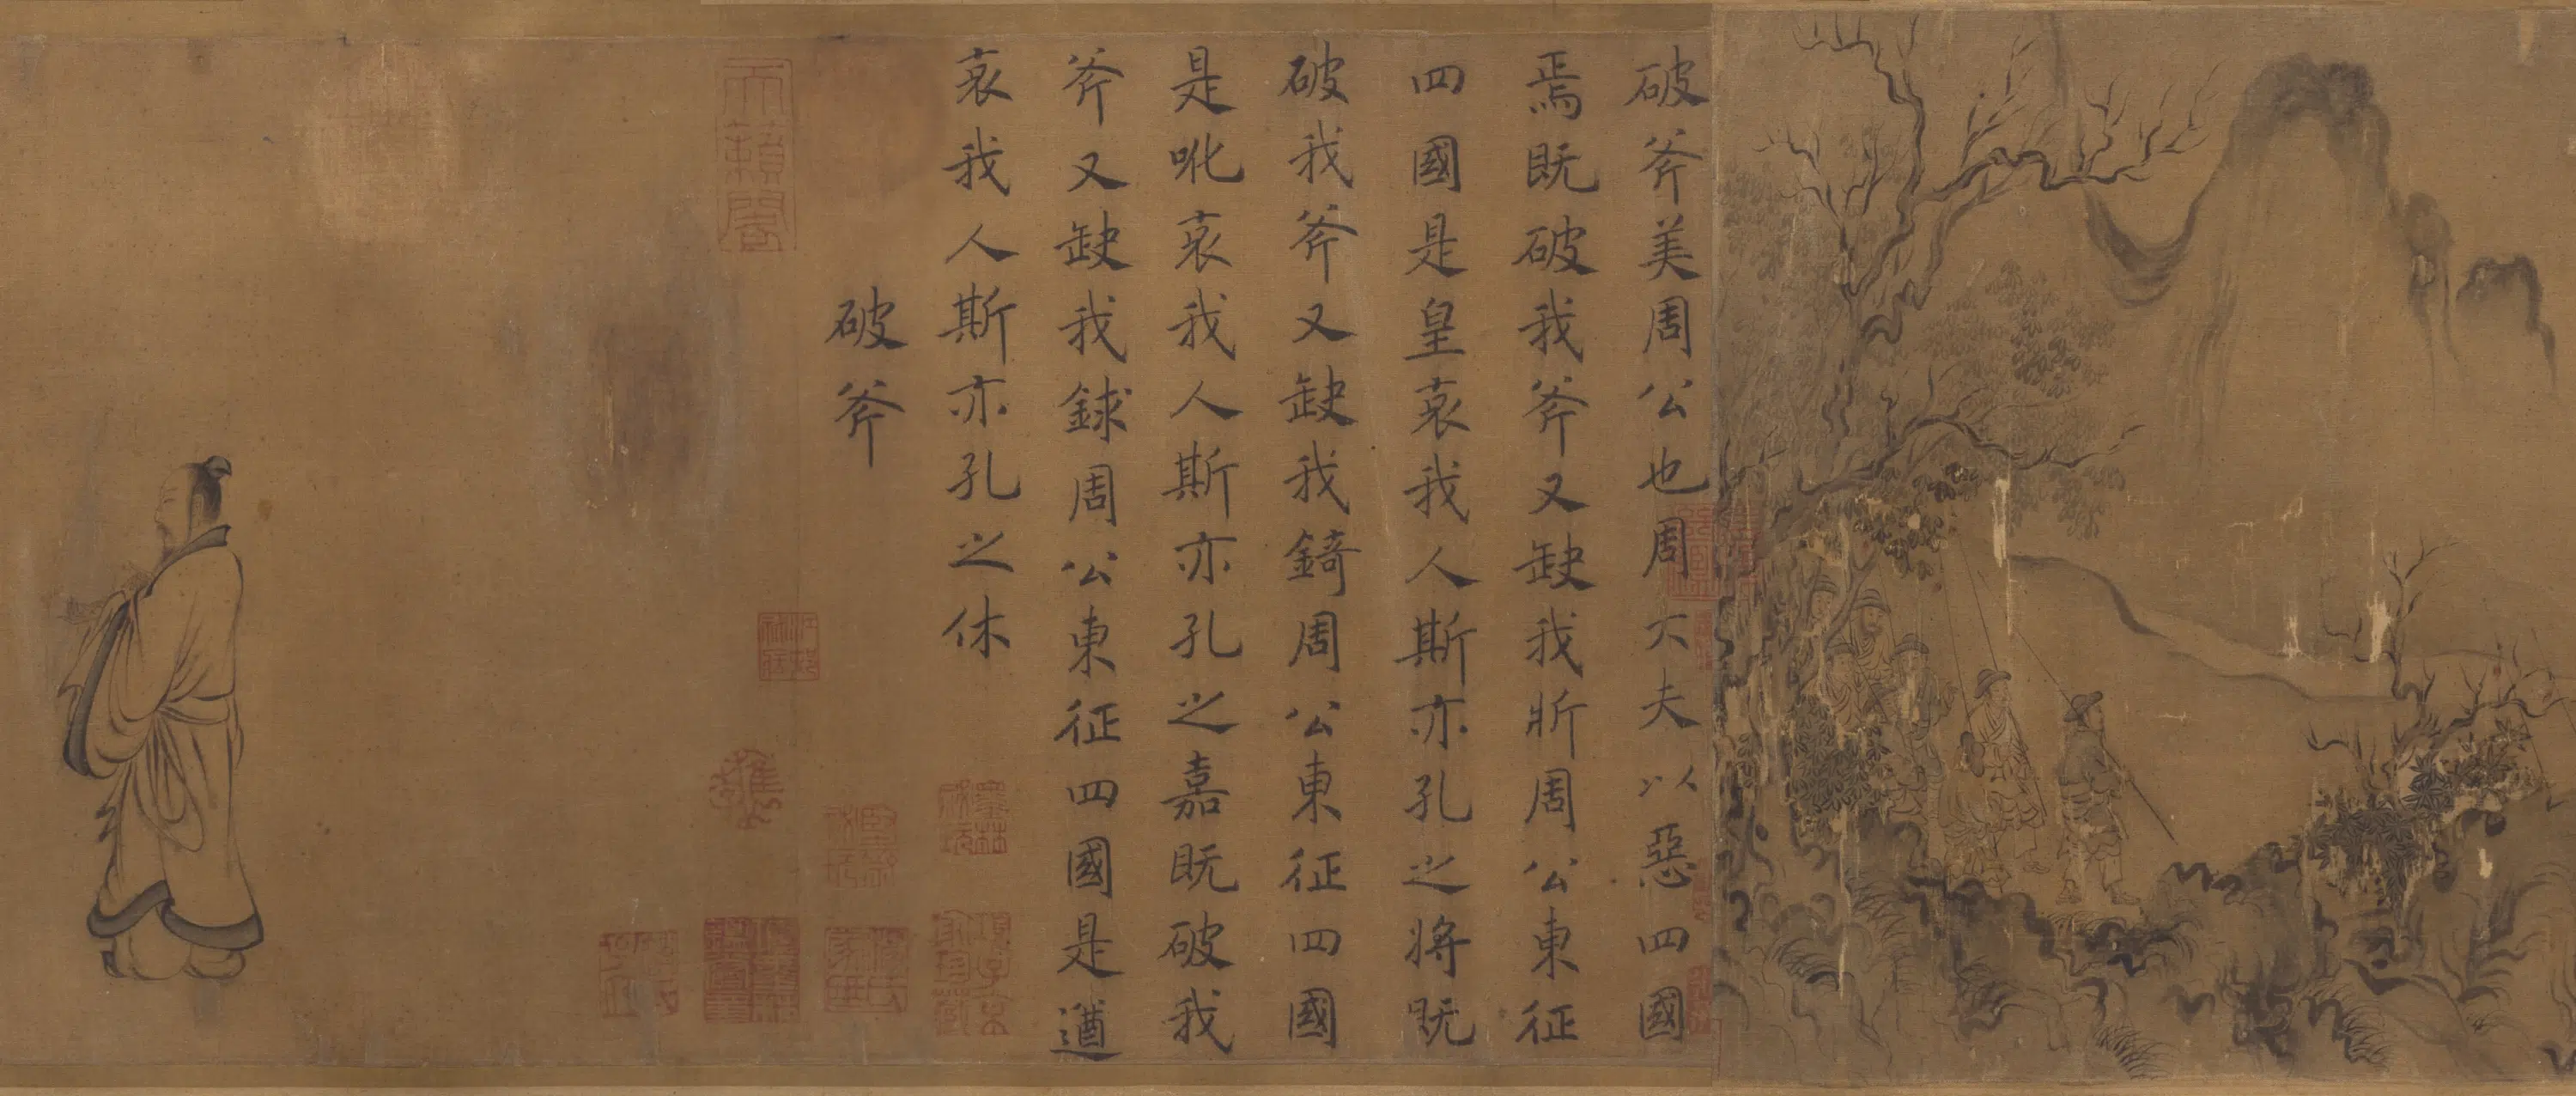 破斧美周公也周大夫以惡四國
焉既破我斧又缺我斨周公東征
四國是皇哀我人斯亦孔之將既
破我斧又缺我錡周公東征四國
是吪哀我人斯亦孔之嘉既破我
斧又缺我銶周公東征四國是遒
哀我人斯亦孔之休
破斧
墨林秘玩
項子京家珍藏
天籟閣